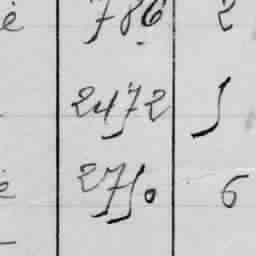 é 786 2
2472 5
é 2750 6